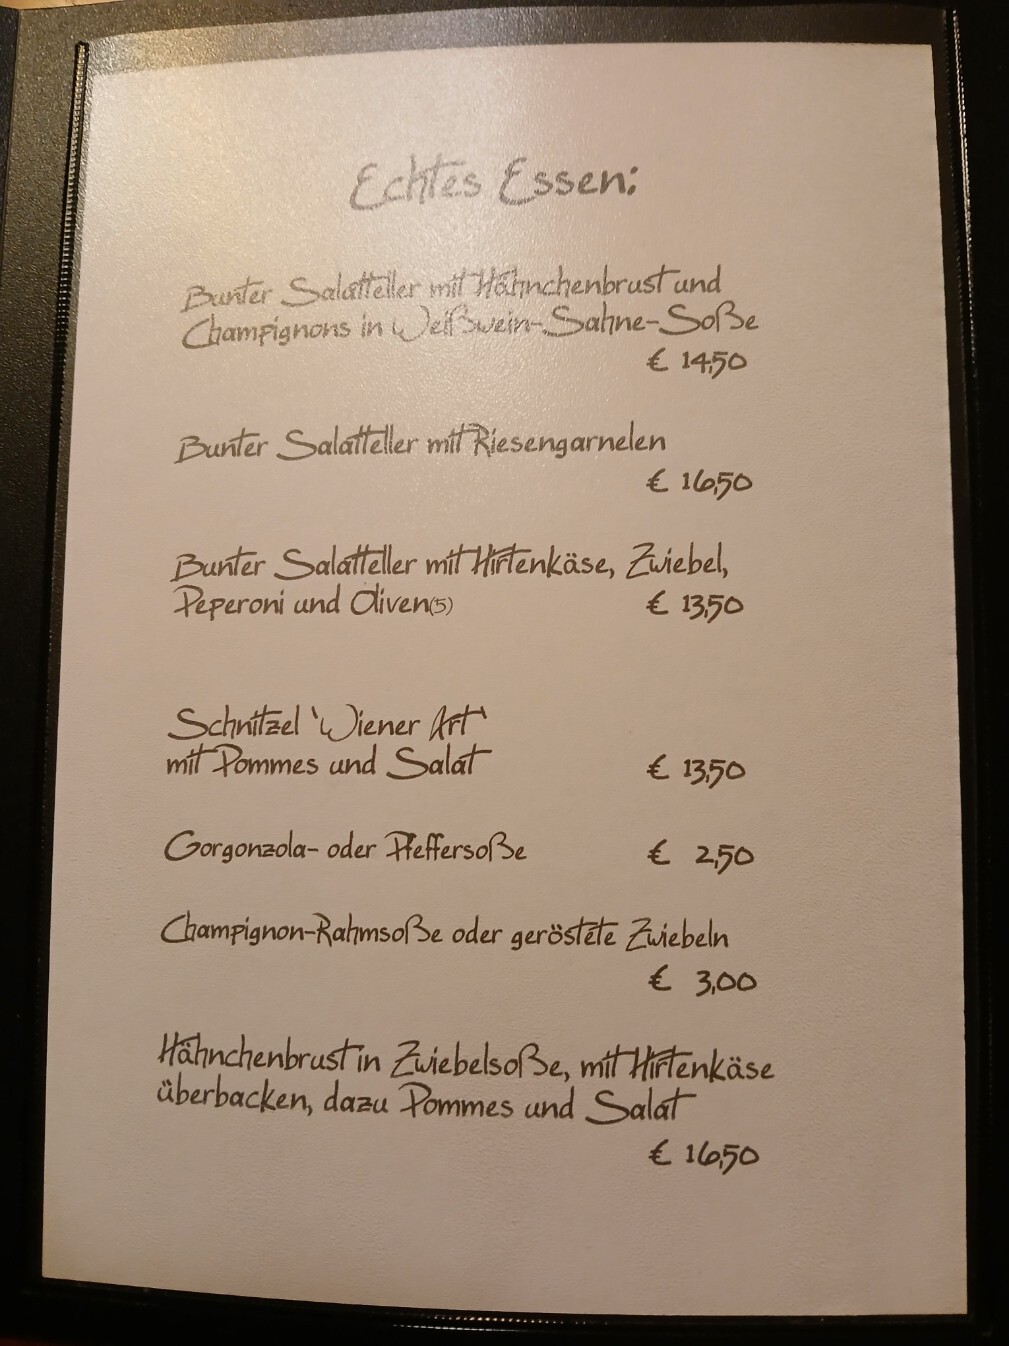 Echtes Essen:
Bunter Salatteller mit Hähnchenbrust und
Champignons in Weißwein-Sahne-Soße
€ 14,50
Bunter Salatteller mit Riesengarnelen
€ 16,50
Bunter Salatteller mit Hirtenkäse, Zwiebel,
Peperoni und Oliven(5) € 13,50
Schnitzel 'Wiener Art'
mit Pommes und Salat € 13,50
Gorgonzola- oder Pfeffersoße € 2,50
Champignon-Rahmsoße oder geröstete Zwiebeln
€ 3,00
Hähnchenbrust in Zwiebelsoße, mit Hirtenkäse
überbacken, dazu Pommes und Salat
€ 16,50